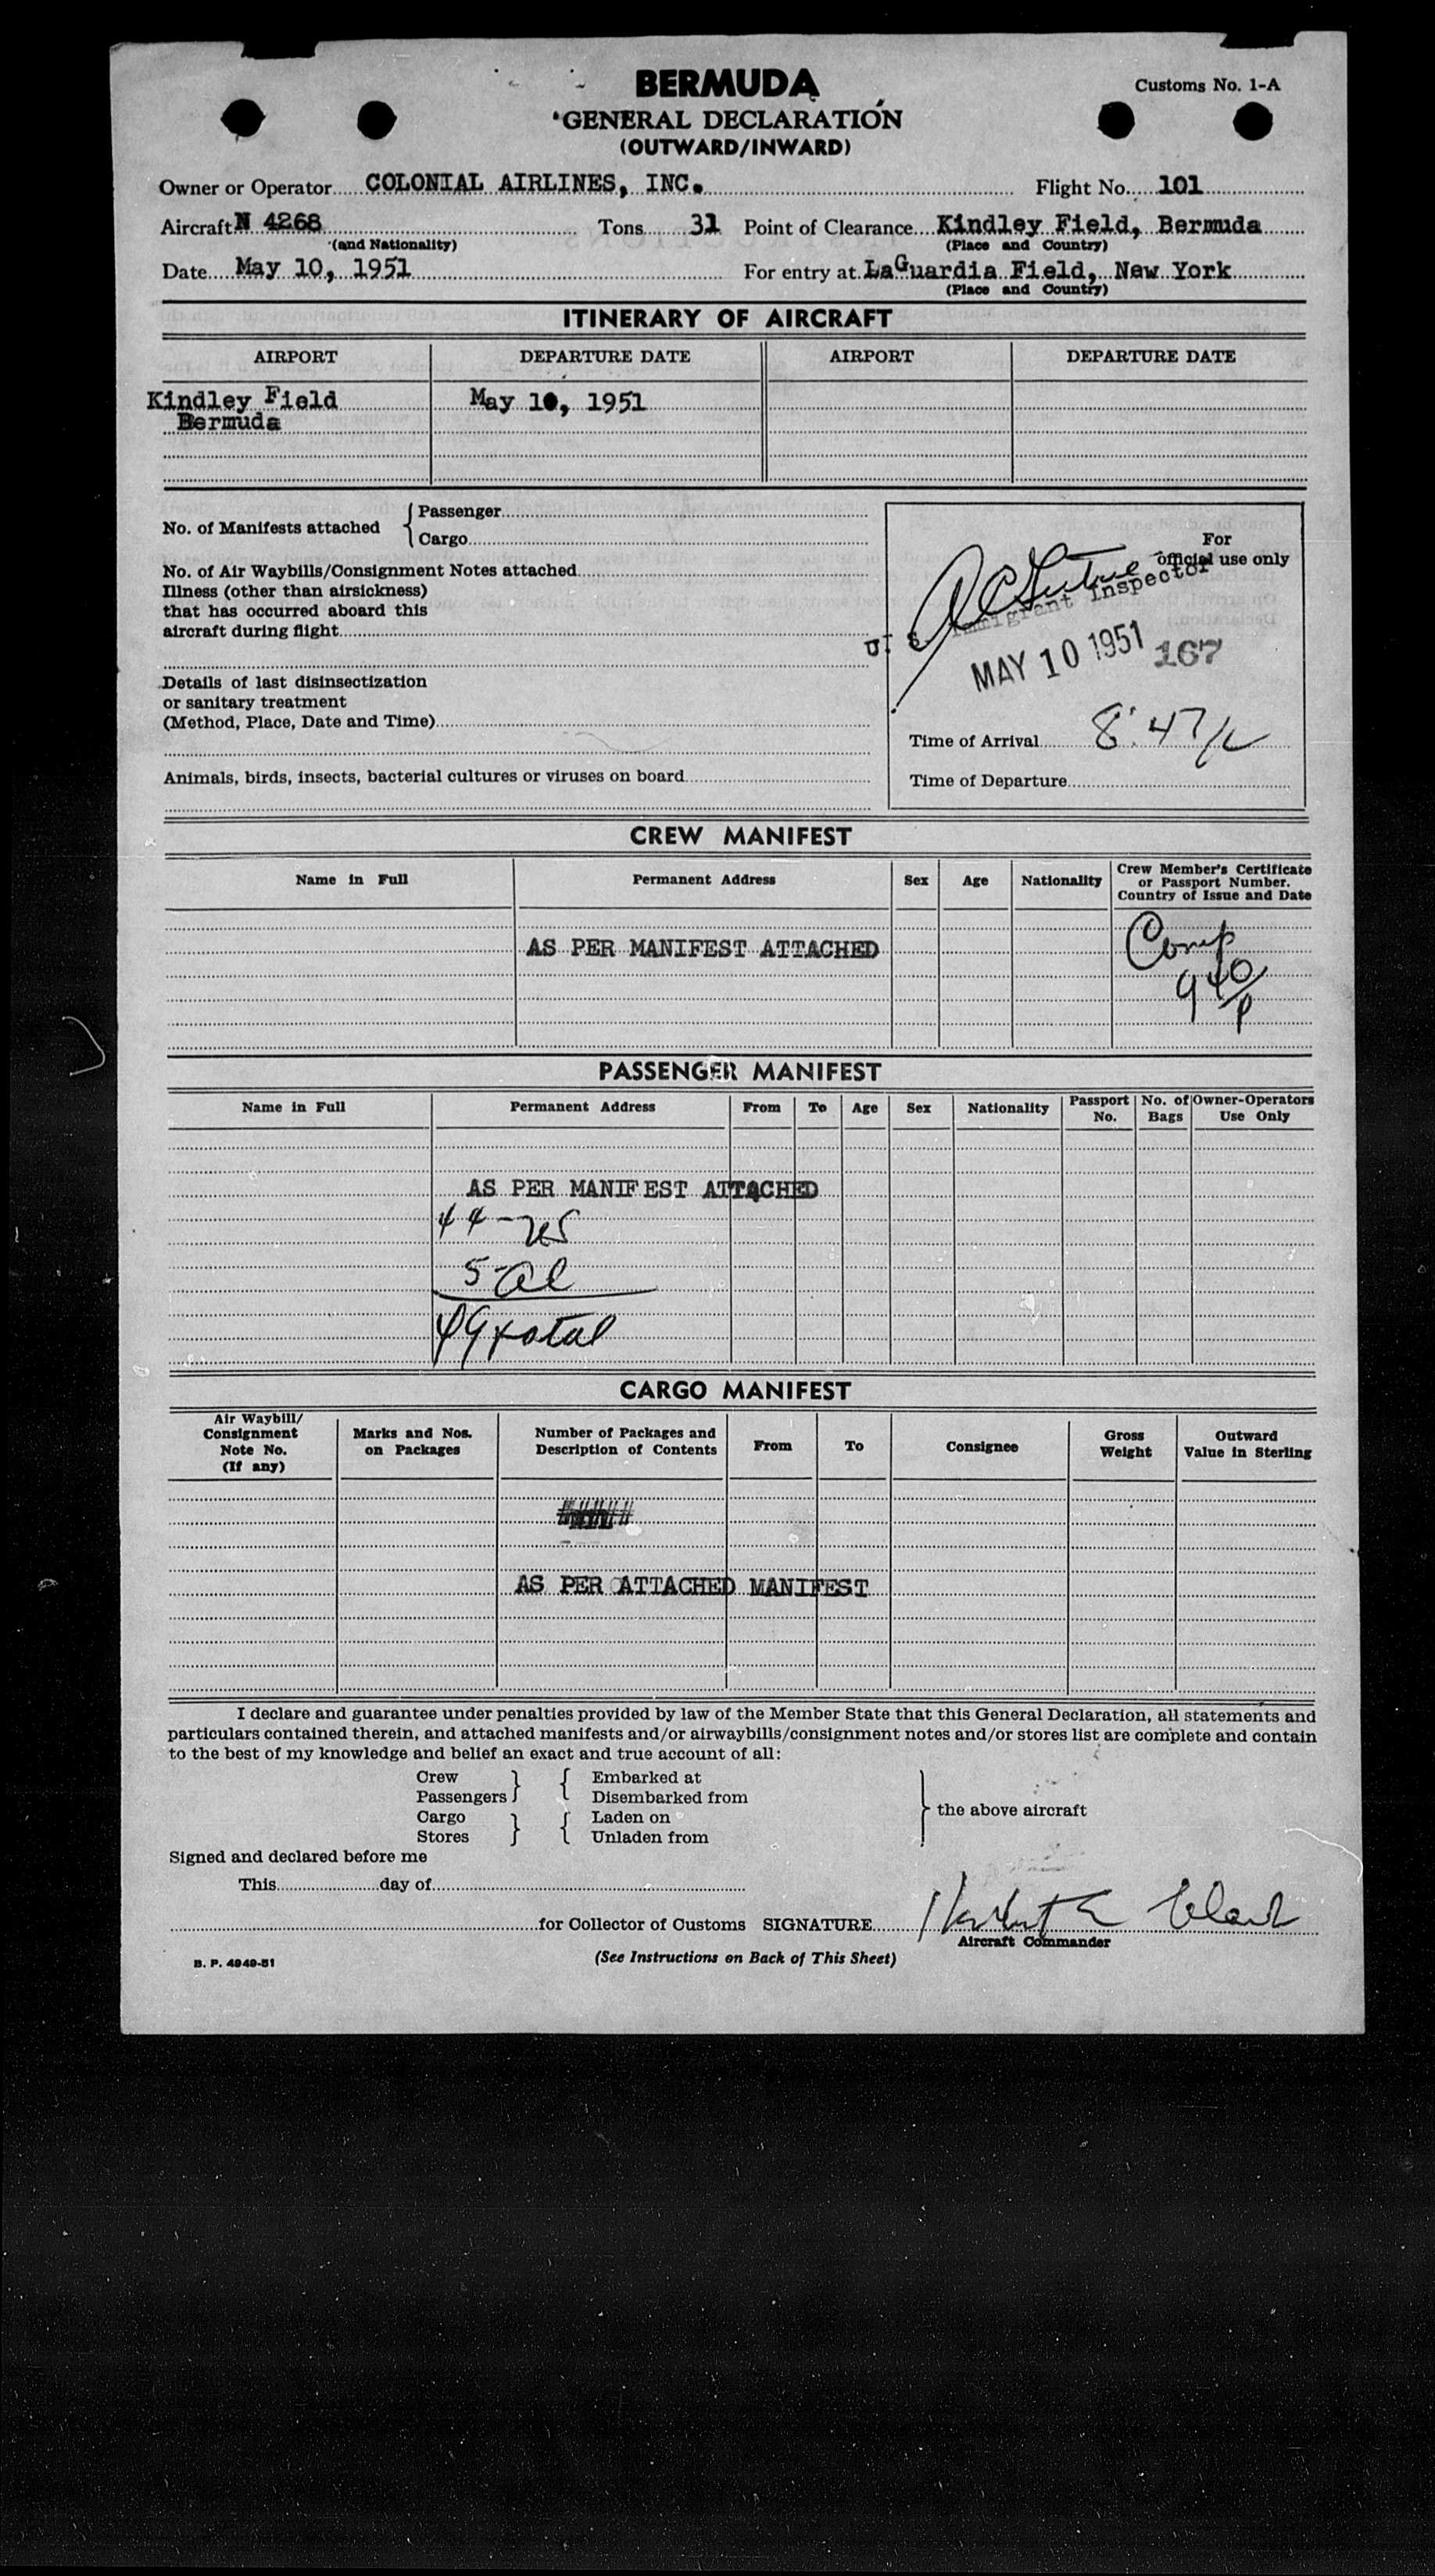 BERMUDA
Customs No. 1-A
GENERAL DECLARATION
(OUTWARD/INWARD)
Owner or Operator COLONIAL AIRLINES, INC. Flight No. 101
Aircraft N 4268 Tons 31 Point of Clearance Kindley Field, Bermuda
(and Nationality) (Place and Country)
Date May 10, 1951 For entry at LaGuardia Field, New York
(Place and Country)
ITINERARY OF AIRCRAFT
AIRPORT DEPARTURE DATE AIRPORT DEPARTURE DATE
Kindley Field May 10, 1951
Bermuda
No. of Manifests attached { Passenger
Cargo
No. of Air Waybills/Consignment Notes attached
Illness (other than airsickness)
that has occurred aboard this
aircraft during flight
Details of last disinsectization
or sanitary treatment
(Method, Place, Date and Time)
Animals, birds, insects, bacterial cultures or viruses on board
For
official use only
U. S. Immigrant Inspector
MAY 10 1951 167
Time of Arrival 8:47
Time of Departure
CREW MANIFEST
Name in Full Permanent Address Sex Age Nationality Crew Member's Certificate
or Passport Number.
Country of Issue and Date
AS PER MANIFEST ATTACHED
Comp
940/p
PASSENGER MANIFEST
Name in Full Permanent Address From To Age Sex Nationality Passport No. No. of Bags Owner-Operators Use Only
AS PER MANIFEST ATTACHED
44-US
5-al
49 total
CARGO MANIFEST
Air Waybill/
Consignment
Note No.
(If any)
Marks and Nos.
on Packages
Number of Packages and
Description of Contents
From To Consignee
Gross
Weight
Outward
Value in Sterling
AS PER ATTACHED MANIFEST
I declare and guarantee under penalties provided by law of the Member State that this General Declaration, all statements and
particulars contained therein, and attached manifests and/or airwaybills/consignment notes and/or stores list are complete and contain
to the best of my knowledge and belief an exact and true account of all:
Crew } { Embarked at
Passengers } { Disembarked from
Cargo } { Laden on
Stores } { Unladen from
} the above aircraft
Signed and declared before me
This day of
for Collector of Customs SIGNATURE Herbert E Clark
Aircraft Commander
B. P. 4949-51
(See Instructions on Back of This Sheet)